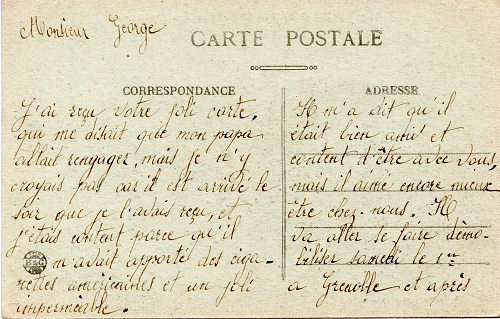 Monsieur George
CARTE POSTALE
CORRESPONDANCE
J'ai reçu votre joli carte,
qui me disait que mon papa
allait rengager, mais je n'y
croyais pas car il est arrivé le
soir que je l'avais reçu, et
j'étais content parce qu'il
m'avait apporté des ciga-
rettes américaines et un joli
imperméable.
ADRESSE
Il m'a dit qu'il
était bien ami et
content d'être avec vous,
mais il aime encore mieux
être chez-nous. Il
va aller se faire démo-
biliser samedi le 1er
a Grenoble et après